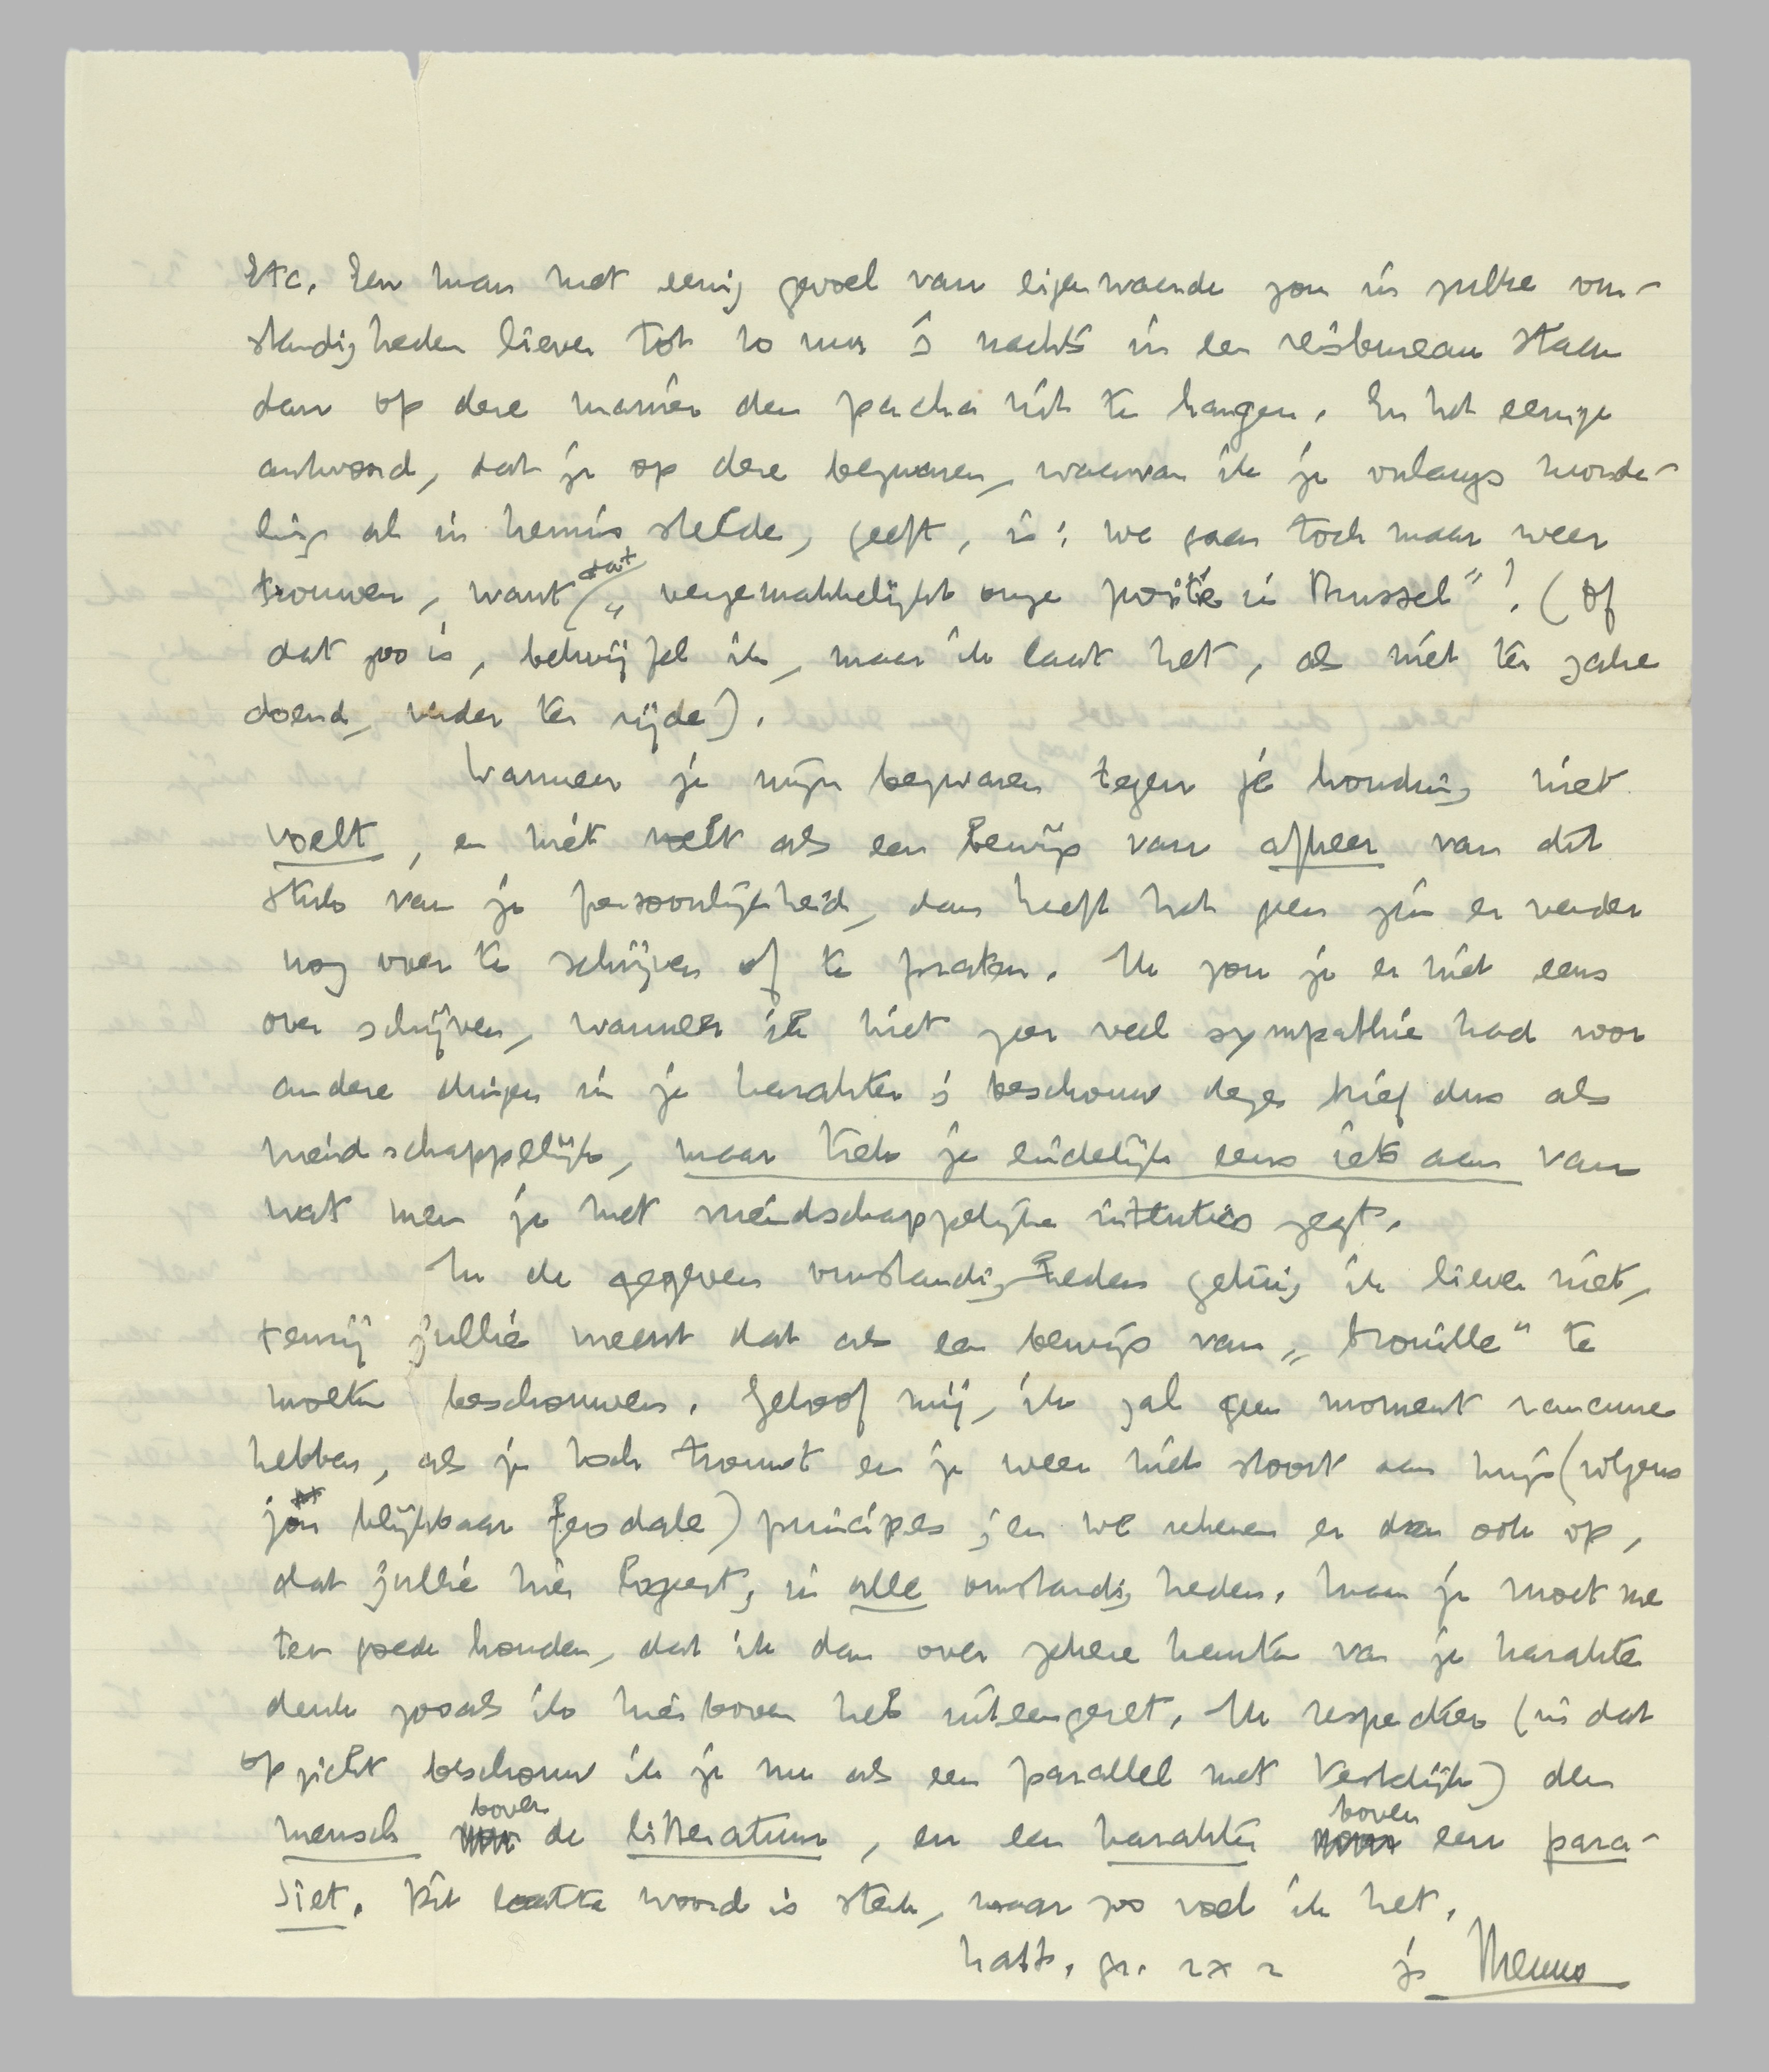 etc. Een man met eenig gevoel van eigenwaarde zou in zulke om-
standigheden liever tot 10 uur 's nachts in een reisbureau staan
dan op deze manier den pacha uit te hangen. En het eenige
antwoord, dat je op deze bezwaren, waarvan ik je onlangs monde-
ling al in kennis stelde, geeft, is: we gaan toch maar weer
trouwen, want dat „vergemakkelijkt onze positie in Brussel"! (Of
dat zoo is, betwijfel ik, maar ik laat het, als niet ter zake
doend, verder ter zijde).
Wanneer je mijn bezwaren tegen je houding niet
voelt, en niet voelt als een bewijs van afkeer van dit
stuk van je persoonlijkheid, dan heeft het geen zin er verder
nog over te schrijven of te praten. Ik zou je er niet eens
over schrijven, wanneer ik niet zeer veel sympathie had voor
andere dingen in je karakter; beschouw dezen brief dus als
vriendschappelijk, maar trek je eindelijk eens iets aan van
wat men je met vriendschappelijke intenties zegt.
In de gegeven omstandigheden getuig ik liever niet,
tenzij jullie meent dat als een bewijs van „brouille" te
moeten beschouwen. Geloof mij, ik zal geen moment rancune
hebben, als je toch trouwt en je weer niet stoort aan mijn (volgens
jou blijkbaar feodale) principes; en we rekenen er dan ook op,
dat jullie hier logeert, in alle omstandigheden. Maar je moet me
ten goede houden, dat ik dan over zekere kanten van je karakter
denk zooals ik hierboven heb uiteengezet. Ik respecteer (in dat
opzicht beschouw ik je nu als een parallel met Vestdijk) den
mensch boven de litteratuur, en een karakter boven een para-
siet. Dit laatste woord is sterk, maar zoo voel ik het.
hart. gr. 2 x 2 je Menno